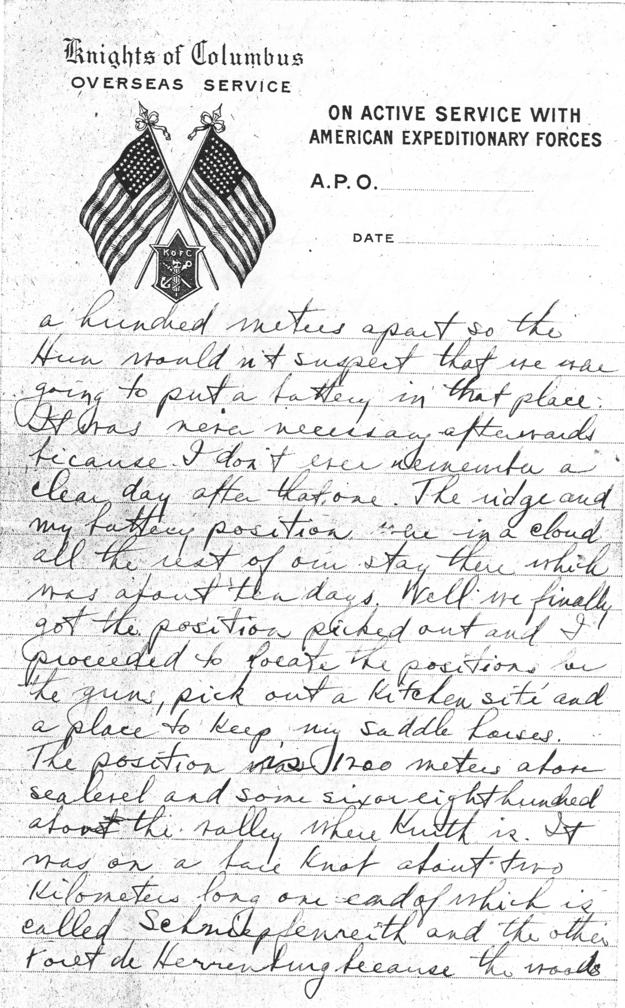 Knights of Columbus
OVERSEAS SERVICE
ON ACTIVE SERVICE WITH
AMERICAN EXPEDITIONARY FORCES
A.P.O.
DATE
K of C
a hundred meters apart so the
Hun would n't suspect that we were
going to put a battery in that place.
It was never necessary afterwards
because I don't ever remember a
clear day after that one. The ridge and
my battery position were in a cloud
all the rest of our stay there which
was about ten days. Well we finally
got the position picked out and I
proceeded to locate the positions for
the guns, pick out a kitchen site and
a place to keep my saddle horses.
The position is 1200 meters above
sealevel and some six or eight hundred
above the valley where Kruth is. It
was on a bare knob about two
kilometers long one end of which is
called Schniepfenreith and the other
Foret de Herrenburg because the woods